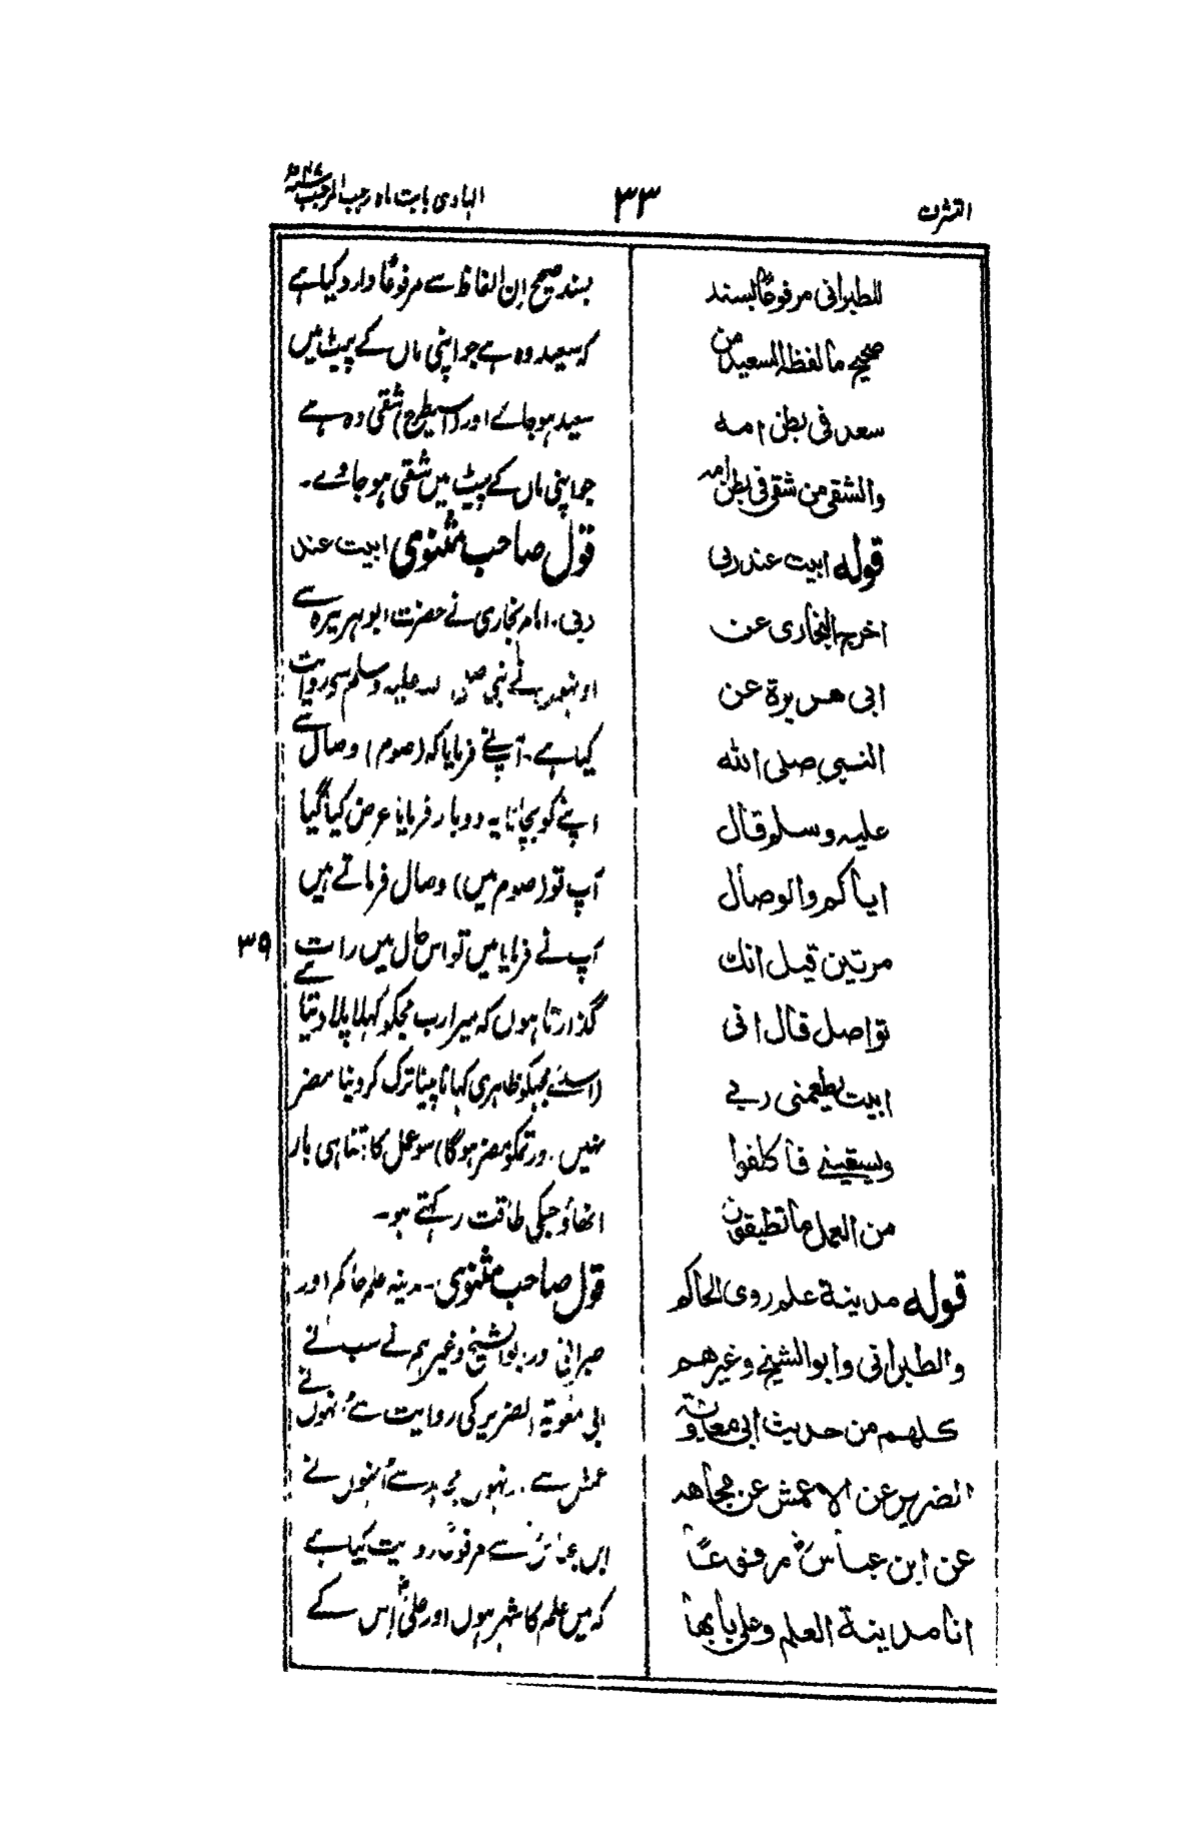 التشرف
۳۳
الہادی بابت ماہ رجب المرجب
للطبرانی مرفوعاً بسند
صحیح ما لفظہ السعید من
سعد فی بطن امہ
والشقی من شقی فی بطن امہ
قولہ ابیت عند ربی
اخرج البخاری عن
ابی ھریرة عن
النبی صلی اللہ
علیہ وسلم قال
ایاکم والوصال
مرتین قیل انک
تواصل قال انی
ابیت یطعمنی ربی
ویسقینی فاکلفوا
من العمل ما تطیقون
قولہ مدینة علم روی الحاکم
والطبرانی وابو الشیخ وغیرھم
کلھم من حدیث ابی معاویة
الضریر عن الاعمش عن مجاھد
عن ابن عباسؓ مرفوعاً
انا مدینة العلم وعلی بابھا
بسند صحیح ان الفاظ سے مرفوعاً وارد کیا ہے
کہ سعید وہ ہے جو اپنی ماں کے پیٹ میں
سعید ہو جائے اور (اسیطرح) شقی وہ ہے
جو اپنی ماں کے پیٹ میں شقی ہو جاوے۔
قول صاحب مثنوی ابیت عند
ربی۔ امام بخاری نے حضرت ابو ہریرہ سے
اونہوں نے نبی صلی اللہ علیہ وسلم سے روایت
کیا ہے۔ آپنے فرمایا کہ (صوم) وصال سے
اپنے کو بچانا یہ دو بار فرمایا عرض کیا گیا
آپ تو (صوم میں) وصال فرماتے ہیں
آپ نے فرمایا میں تو اس حال میں رات
۳۹
گذارتا ہوں کہ میرا رب مجکو کہلا پلا دیتا ہے
(اسلئے مجہکو ظاہری کہانا پینا ترک کر دینا مضر
نہیں۔ اور تمکو مضر ہوگا) سو عمل کا اتنا ہی بار
اٹھاؤ جسکی طاقت رکہتے ہو۔
قول صاحب مثنوی۔ مدینہ علم حاکم اور
طبرانی اور ابوالشیخ وغیرہم نے سب نے
ابی معٰویۃ الضریر کی روایت سے اُنہوں نے
اعمش سے۔ اُنہوں مجاہد سے اُنہوں نے
ابن عباسؓ سے مرفوعاً روایت کیا ہے
کہ میں علم کا شہر ہوں اور علیؓ اِس کے